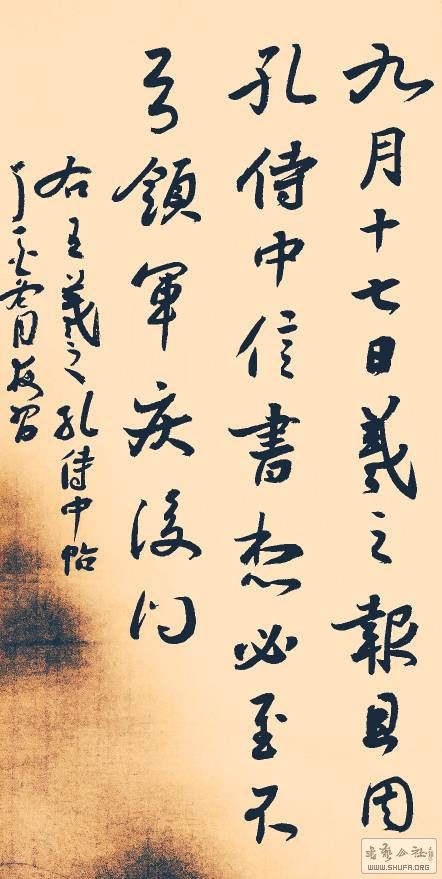 九月十七日羲之報且因
孔侍中信書想必至不
知領軍疾後問
右王羲之孔侍中帖
书艺公社
WWW.SHUFA.ORG